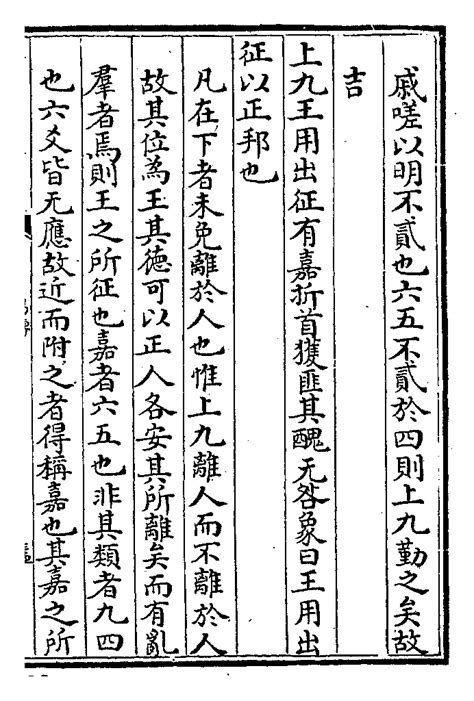 戚嗟以明不貳也六五不貳於四則上九勤之矣故
吉
上九王用出征有嘉折首獲匪其醜无咎象曰王用出
征以正邦也
凡在下者未免離於人也惟上九離人而不離於人
故其位為王其德可以正人各安其所離矣而有亂
羣者焉則王之所征也嘉者六五也非其類者九四
也六爻皆无應故近而附之者得稱嘉也其嘉之所